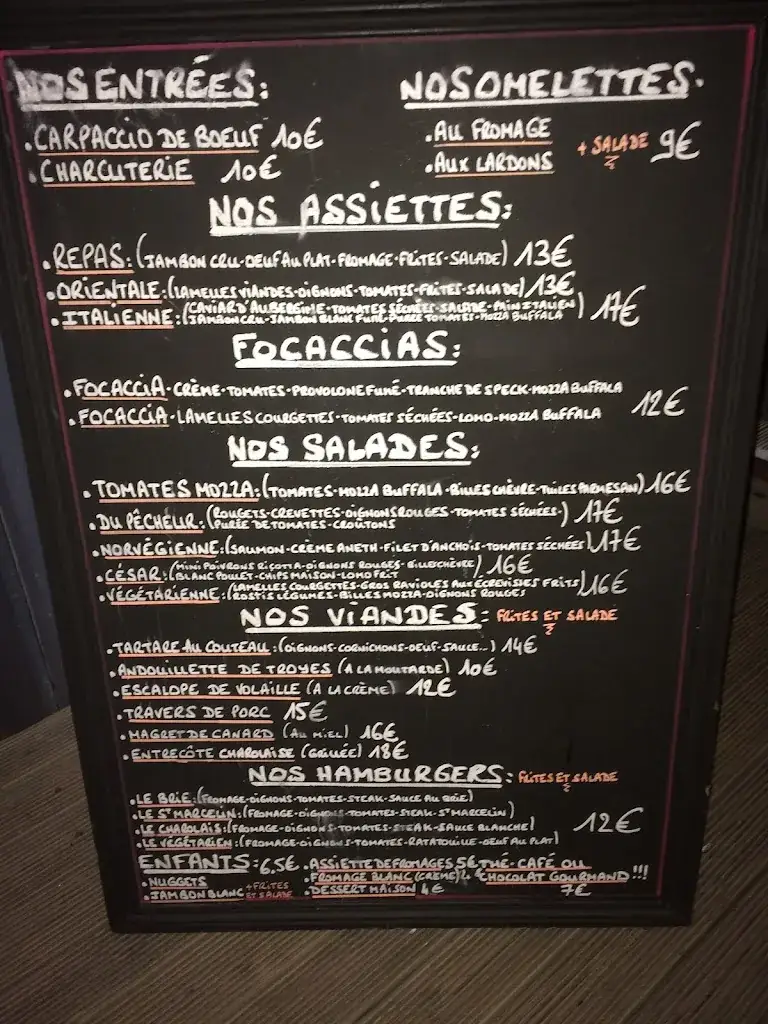 NOS ENTRÉES:
• CARPACCIO DE BOEUF 10€
• CHARCUTERIE 10€
NOS OMELETTES.
• AU FROMAGE
• AUX LARDONS
+ SALADE 9€
NOS ASSIETTES:
• REPAS: (JAMBON CRU-OEUF AU PLAT-FROMAGE-FRITES-SALADE) 13€
• ORIENTALE: (LAMELLES VIANDES-OIGNONS-TOMATES-FRITES-SALADE) 13€
• ITALIENNE: (CAVIAR D'AUBERGINE-TOMATES SÉCHÉES-SALADE-PAIN ITALIEN
JAMBON CRU-JAMBON BLANC FUMÉ-PURÉE TOMATES-MOZZA BUFFALA) 17€
FOCACCIAS:
• FOCACCIA-CRÈME-TOMATES-PROVOLONE FUMÉ-TRANCHE DE SPECK-MOZZA BUFFALA
• FOCACCIA-LAMELLES COURGETTES-TOMATES SÉCHÉES-LOMO-MOZZA BUFFALA
12€
NOS SALADES:
• TOMATES MOZZA: (TOMATES-MOZZA BUFFALA-BILLES CHÈVRE-TUILES PARMESAN) 16€
• DU PÊCHEUR: (ROUGETS-CREVETTES-OIGNONS ROUGES-TOMATES SÉCHÉES-
PURÉE DE TOMATES-CROÛTONS) 17€
• NORVÉGIENNE: (SAUMON-CRÈME ANETH-FILET D'ANCHOIS-TOMATES SÉCHÉES) 17€
• CÉSAR: (MINI POIVRONS RICOTTA-OIGNONS ROUGES-BILLE CHÈVRE
BLANC POULET-CHIPS MAISON-LOMO FRIT) 16€
• VÉGÉTARIENNE: (LAMELLES COURGETTES-GROS RAVIOLES AUX ÉCREVISSES FRITS
ROSTIS LÉGUMES-BILLES MOZZA-OIGNONS ROUGES) 16€
NOS VIANDES: FRITES ET SALADE
• TARTARE AU COUTEAU: (OIGNONS-CORNICHONS-OEUF-SAUCE...) 14€
• ANDOUILLETTE DE TROYES (A LA MOUTARDE) 10€
• ESCALOPE DE VOLAILLE (A LA CRÈME) 12€
• TRAVERS DE PORC 15€
• MAGRET DE CANARD (AU MIEL) 16€
• ENTRECÔTE CHAROLAISE (GRILLÉE) 18€
NOS HAMBURGERS: FRITES ET SALADE
• LE BRIE: (FROMAGE-OIGNONS-TOMATES-STEAK-SAUCE AU BRIE)
• LE ST MARCELIN: (FROMAGE-OIGNONS-TOMATES-STEAK-ST MARCELIN)
• LE CHAROLAIS: (FROMAGE-OIGNONS-TOMATES-STEAK-SAUCE BLANCHE)
• LE VÉGÉTARIEN: (FROMAGE-OIGNONS-TOMATES-RATATOUILLE-OEUF AU PLAT)
12€
ENFANTS: 6,5€
• NUGGETS
• JAMBON BLANC
+ FRITES
ET SALADE
• ASSIETTE DE FROMAGES 5€
• FROMAGE BLANC (CRÈME)
• DESSERT MAISON 4€
THÉ-CAFÉ OU
CHOCOLAT GOURMAND !!!
7€